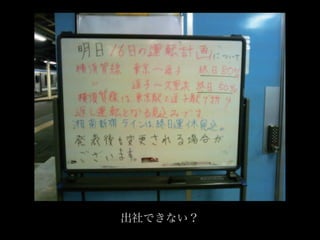 明日16日の運転計画について
横須賀線 東京〜逗子 終日80%
〃 逗子〜久里浜 終日50%
横須賀線は東京駅と逗子駅で折り
返し運転となる見込みです。
湘南新宿ラインは終日運休見込。
発表後も変更される場合が
ございます。
出社できない?